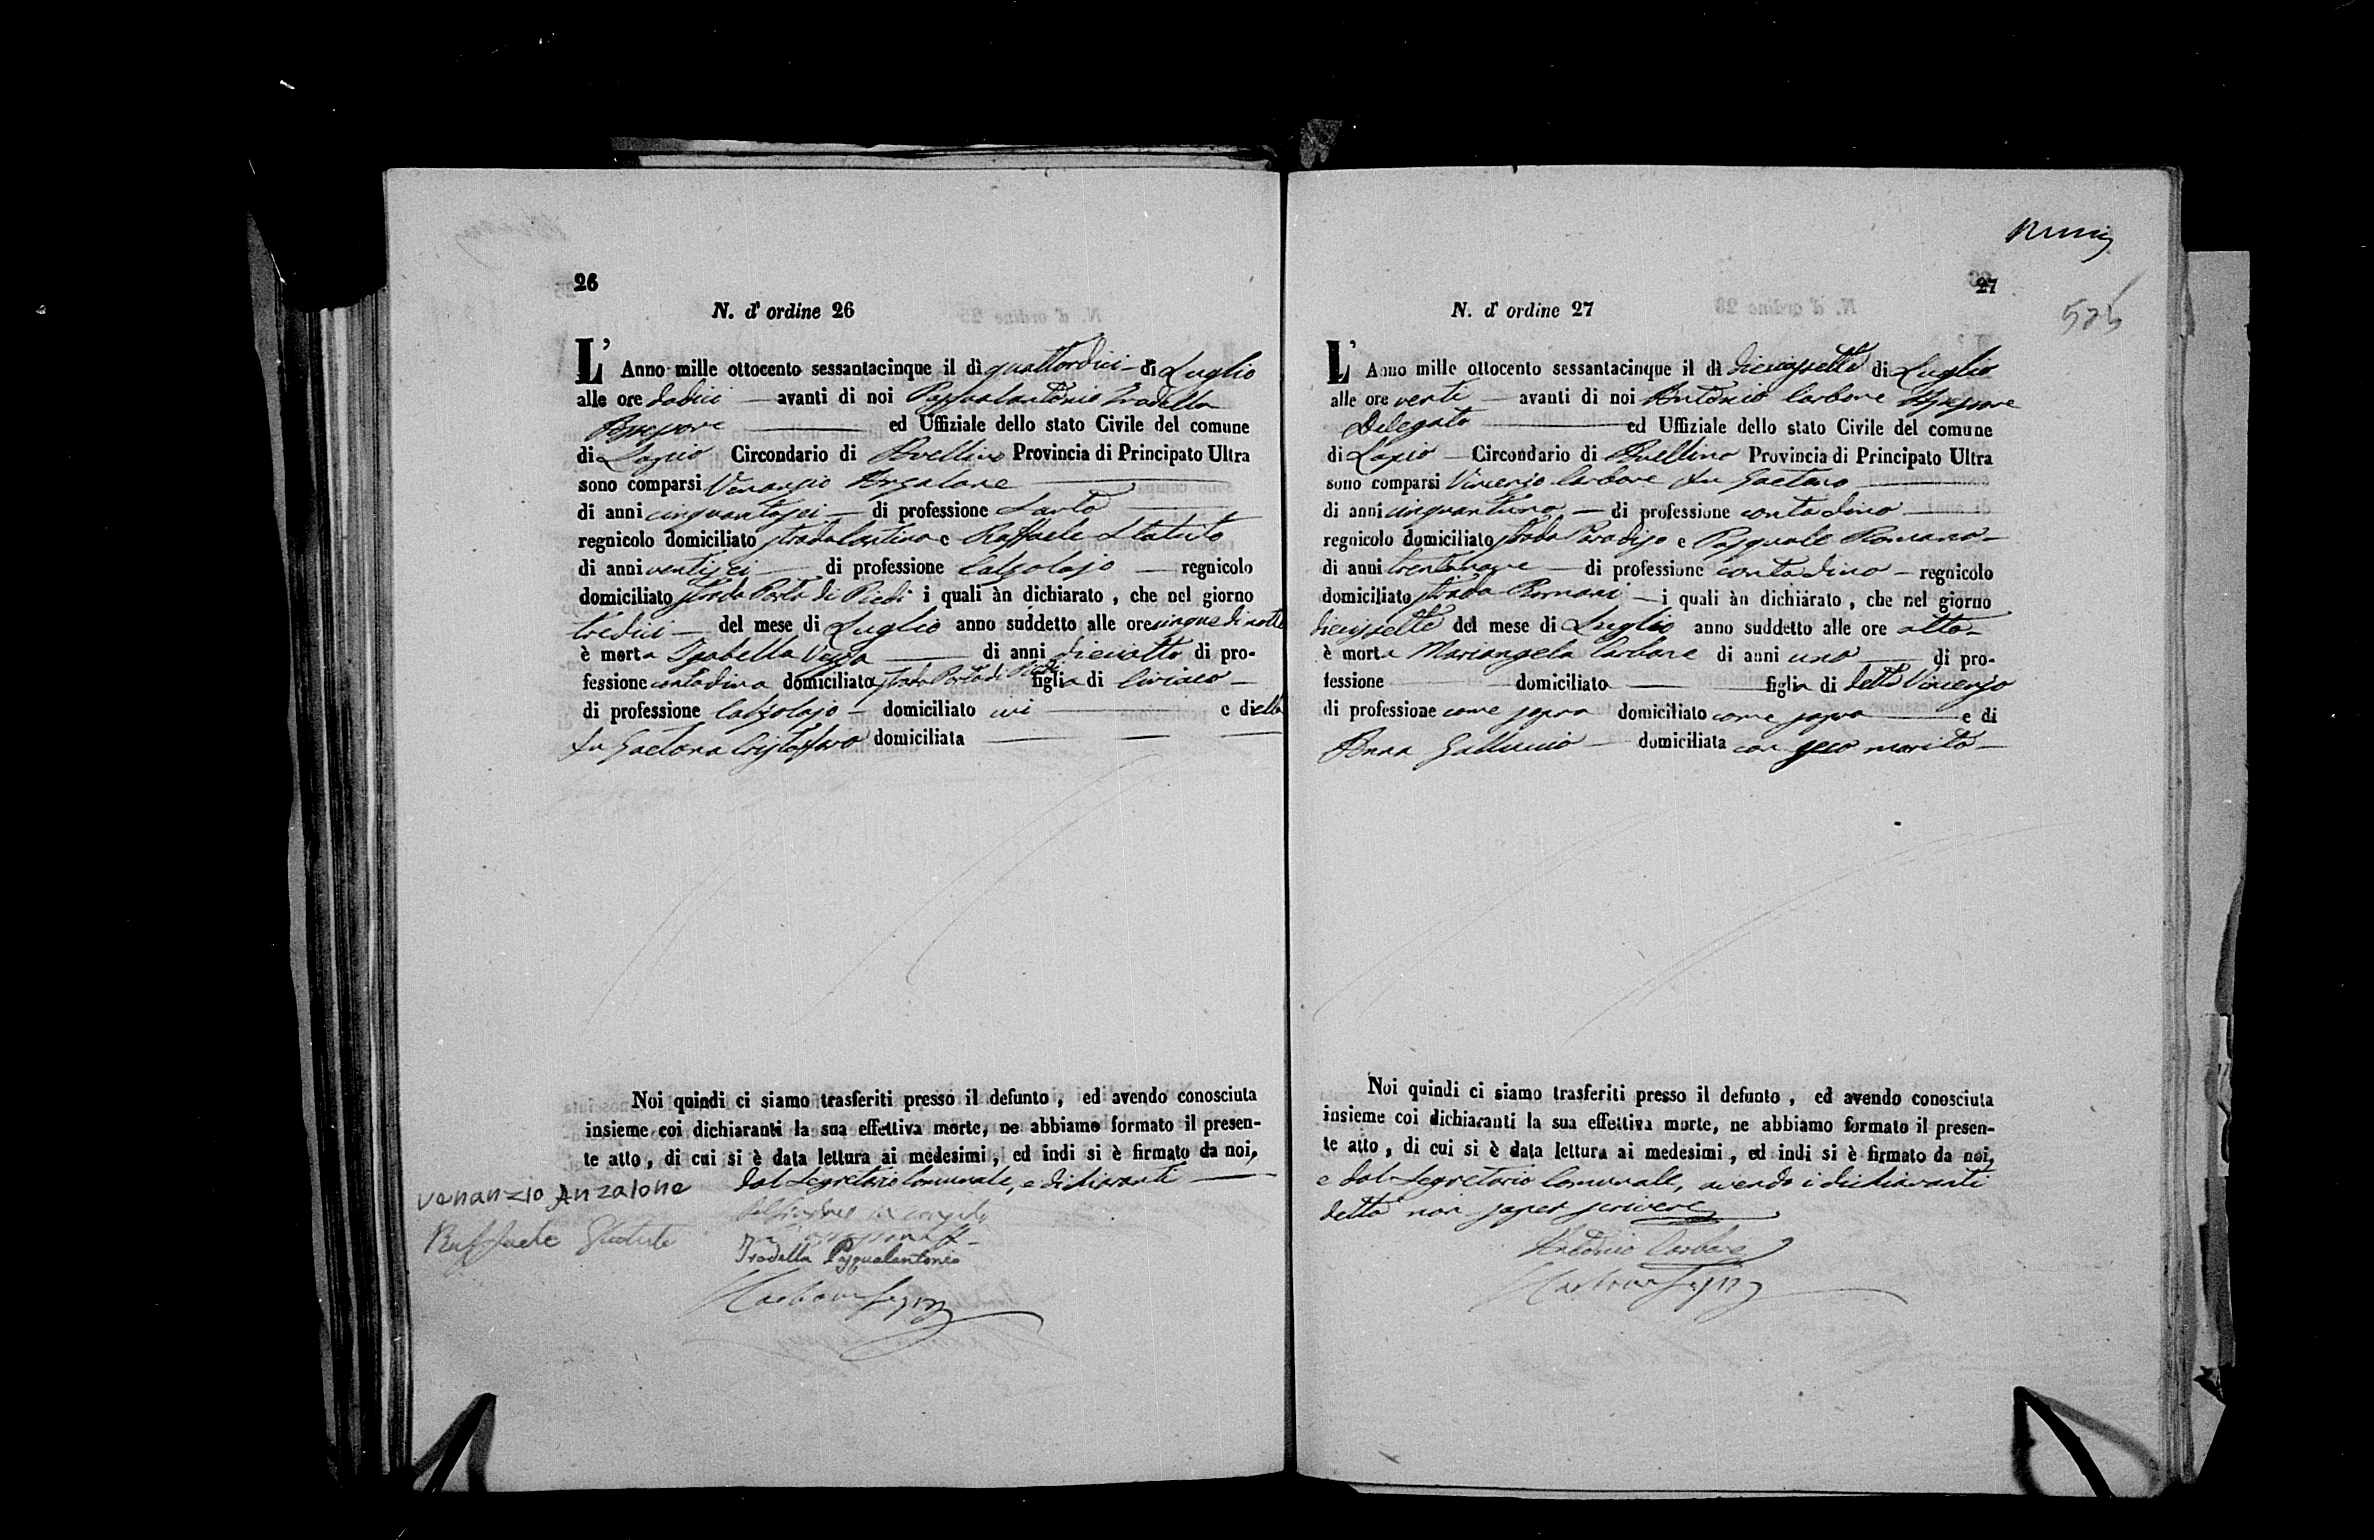 26
N. d' ordine 26
L' Anno mille ottocento sessantacinque il dì quattordici di Luglio
alle ore dodici avanti di noi Pasqualantonio Iradella
Assessore ed Uffiziale dello stato Civile del comune
di Lapio Circondario di Avellino Provincia di Principato Ultra
sono comparsi Venanzio Anzalone
di anni cinquantasei di professione Sarto
regnicolo domiciliato strada Cantina e Raffaele Statuto
di anni ventisei di professione Calzolajo regnicolo
domiciliato strada Porta di Piedi i quali àn dichiarato , che nel giorno
tredici del mese di Luglio anno suddetto alle ore cinque di notte
è morta Isabella di anni dieciotto di pro-
fessione contadina domiciliata strada Porta di Piedi figlia di Ciriaco
di professione Calzolajo domiciliato ivi e di ella
fu Gaetana Cristofaro domiciliata
Noi quindi ci siamo trasferiti presso il defunto , ed avendo conosciuta
insieme coi dichiaranti la sua effettiva morte, ne abbiamo formato il presen-
te atto , di cui si è data lettura ai medesimi , ed indi si è firmato da noi,
dal Segretario Comunale, e dichiaranti
Venanzio Anzalone
Raffaele Statuto
Iradella Pasqualantonio
27
N. d' ordine 27
525
L' Anno mille ottocento sessantacinque il dì diecissette di Luglio
alle ore venti avanti di noi Antonio Carbone Assessore
Delegato ed Uffiziale dello stato Civile del comune
di Lapio Circondario di Avellino Provincia di Principato Ultra
sono comparsi Vincenzo Carbone fu Gaetano
di anni cinquantuno di professione contadino
regnicolo domiciliato strada Paradiso e Pasquale Romano
di anni trentanove di professione contadino regnicolo
domiciliato strada Romani i quali àn dichiarato , che nel giorno
diecissette del mese di Luglio anno suddetto alle ore otto
è morta Mariangela Carbone di anni uno di pro-
fessione domiciliato figlia di detto Vincenzo
di professione come sopra domiciliato come sopra e di
Anna Galluccio domiciliata con seco marito
Noi quindi ci siamo trasferiti presso il defunto , ed avendo conosciuta
insieme coi dichiaranti la sua effettiva morte, ne abbiamo formato il presen-
te atto , di cui si è data lettura ai medesimi , ed indi si è firmato da noi,
e dal Segretario Comunale, avendo i dichiaranti
detto non saper scrivere
Antonio Carbone